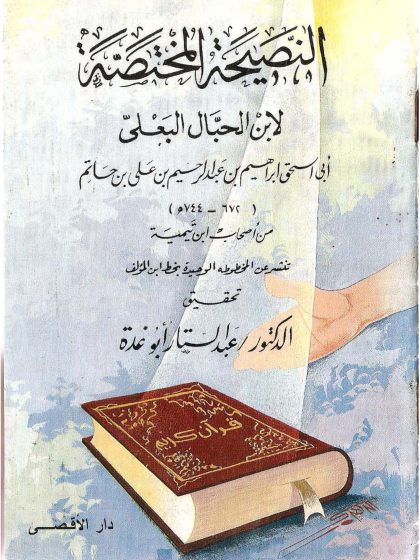 النصيحة المختصة
لابن الحبال البعلي
أبي اسحق ابراهيم بن عبد الرحيم بن علي بن حاتم
( ٦٧٢ - ٧٤٤ م )
من أصحاب ابن تيمية
تنشر عن المخطوطة الوحيدة بخط ابن المؤلف
تحقيق
الدكتور / عبد الستار أبو غدة
قرآن كريم
دار الأقصى